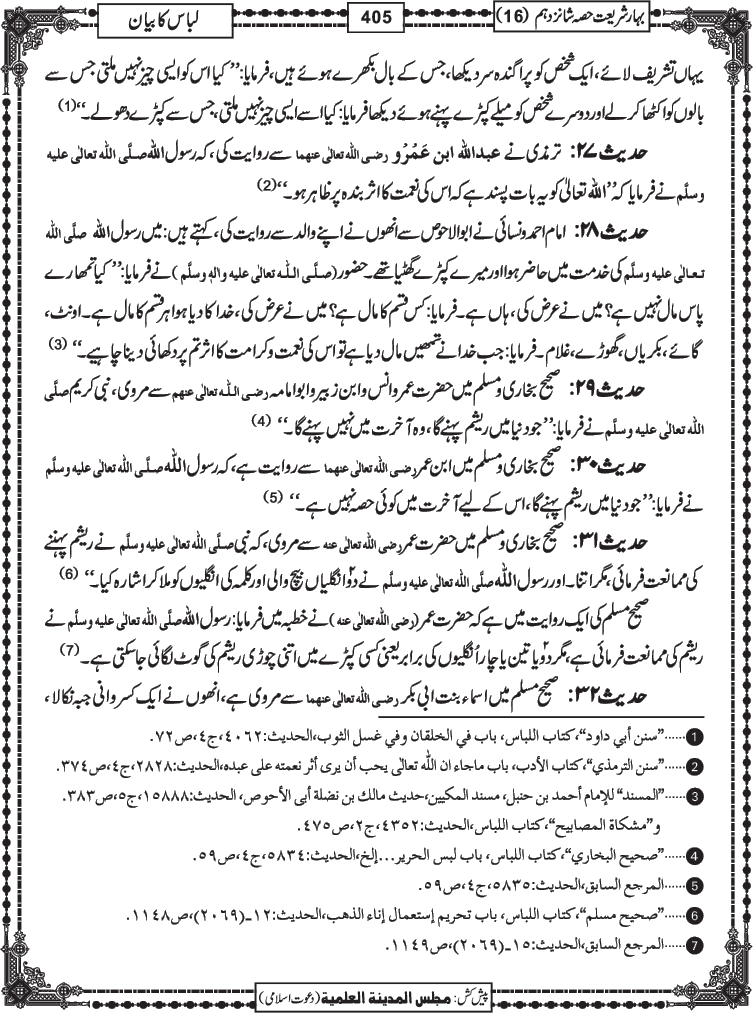 بہارِشریعت حصہ شانزدہم (16)
405
لباس کا بیان
یہاں تشریف لائے، ایک شخص کو پراگندہ سر دیکھا، جس کے بال بکھرے ہوئے ہیں، فرمایا: ’’کیا اس کو ایسی چیز نہیں ملتی جس سے
بالوں کو اکٹھا کرلے اور دوسرے شخص کو میلے کپڑے پہنے ہوئے دیکھا فرمایا: کیا اسے ایسی چیز نہیں ملتی، جس سے کپڑے دھولے۔‘‘(1)
حدیث ۲۷: ترمذی نے عبداللہ ابن عَمْرو رضی اللہ تعالیٰ عنہما سے روایت کی، کہ رسول اللہ صلَّی اللہ تعالیٰ علیہ
وسلَّم نے فرمایا کہ ’’اللہ تعالیٰ کو یہ بات پسند ہے کہ اس کی نعمت کا اثر بندہ پر ظاہر ہو۔‘‘(2)
حدیث ۲۸: امام احمد و نسائی نے ابوالاحوص سے انھوں نے اپنے والد سے روایت کی، کہتے ہیں: میں رسول اللہ صلَّی اللہ
تعالیٰ علیہ وسلَّم کی خدمت میں حاضر ہوا اور میرے کپڑے گھٹیا تھے۔ حضور (صلَّی اللہ تعالیٰ علیہ واٰلہٖ وسلَّم) نے فرمایا: ’’کیا تمھارے
پاس مال نہیں ہے؟ میں نے عرض کی، ہاں ہے۔ فرمایا: کس قسم کا مال ہے؟ میں نے عرض کی، خدا کا دیا ہوا ہر قسم کا مال ہے۔ اونٹ،
گائے، بکریاں، گھوڑے، غلام۔ فرمایا: جب خدا نے تمھیں مال دیا ہے تو اس کی نعمت و کرامت کا اثر تم پر دکھائی دینا چاہیے۔‘‘(3)
حدیث ۲۹: صحیح بخاری و مسلم میں حضرت عمر و انس و ابن زبیر و ابوامامہ رضی اللہ تعالیٰ عنہم سے مروی، نبی کریم صلَّی
اللہ تعالیٰ علیہ وسلَّم نے فرمایا: ’’جو دنیا میں ریشم پہنے گا، وہ آخرت میں نہیں پہنے گا۔‘‘(4)
حدیث ۳۰: صحیح بخاری و مسلم میں ابن عمر رضی اللہ تعالیٰ عنہما سے روایت ہے، کہ رسول اللہ صلَّی اللہ تعالیٰ علیہ وسلَّم
نے فرمایا: ’’جو دنیا میں ریشم پہنے گا، اس کے لیے آخرت میں کوئی حصہ نہیں ہے۔‘‘(5)
حدیث ۳۱: صحیح بخاری و مسلم میں حضرت عمر رضی اللہ تعالیٰ عنہ سے مروی، کہ نبی صلَّی اللہ تعالیٰ علیہ وسلَّم نے ریشم پہننے
کی ممانعت فرمائی، مگر اتنا۔ اور رسول اللہ صلَّی اللہ تعالیٰ علیہ وسلَّم نے دو۲ اُنگلیاں بیچ والی اور کلمہ کی انگلیوں کو ملا کر اشارہ کیا۔‘‘(6)
صحیح مسلم کی ایک روایت میں ہے کہ حضرت عمر (رضی اللہ تعالیٰ عنہ) نے خطبہ میں فرمایا: رسول اللہ صلَّی اللہ تعالیٰ علیہ وسلَّم نے
ریشم کی ممانعت فرمائی ہے، مگر دو۲ یا تین یا چار اُنگلیوں کی برابر یعنی کسی کپڑے میں اتنی چوڑی ریشم کی گوٹ لگائی جاسکتی ہے۔(7)
حدیث ۳۲: صحیح مسلم میں اسماء بنت ابی بکر رضی اللہ تعالیٰ عنہما سے مروی ہے، انھوں نے ایک کسروانی جبہ نکالا،
1......”سنن أبي داود“،کتاب اللباس، باب في الخلقان وفي غسل الثوب،الحدیث:٤٠٦٢،ج٤،ص٧٢.
2......”سنن الترمذي“،کتاب الأدب، باب ماجاء ان اللّٰہ تعالیٰ یحب أن یری أثر نعمتہ علی عبدہ،الحدیث:٢٨٢٨،ج٤،ص٣٧٤.
3......”المسند“للإمام أحمد بن حنبل، مسند المکیین،حدیث مالك بن نضلة أبی الأحوص، الحدیث:١٥٨٨٨،ج٥،ص٣٨٣.
و”مشکاة المصابیح“،کتاب اللباس،الحدیث:٤٣٥٢،ج٢،ص٤٧٥.
4......”صحیح البخاري“،کتاب اللباس، باب لبس الحریر...إلخ،الحدیث:٥٨٣٤،ج٤،ص٥٩.
5......المرجع السابق،الحدیث:٥٨٣٥،ج٤،ص٥٩.
6......”صحیح مسلم“،کتاب اللباس، باب تحریم إستعمال إناء الذهب،الحدیث:١٢ـ(٢٠٦٩)،ص١١٤٨.
7......المرجع السابق،الحدیث:١٥ـ(٢٠٦٩)،ص١١٤٩.
پیش کش: مجلس المدینة العلمیة (دعوت اسلامی)